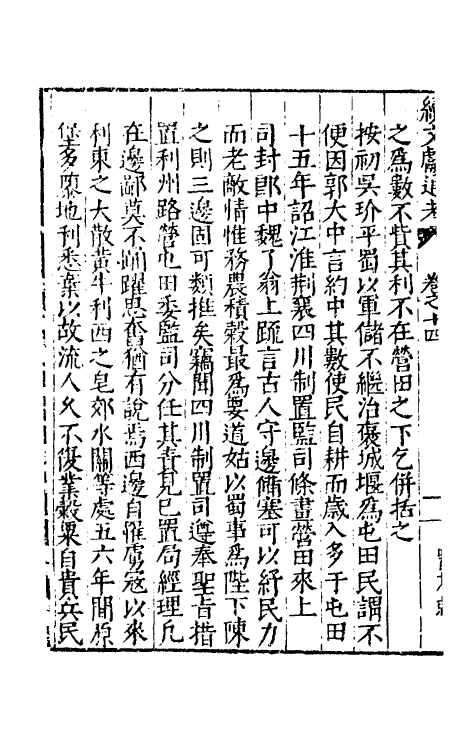 續文獻通考 卷之十四
之爲數不貲其利不在營田之下乞併括之
按初吳玠平蜀以軍儲不繼治褒城堰爲屯田民謂不
便因郭大中言約中其數使民自耕而歲入多于屯田
十五年詔江淮荆襄四川制置監司條畫營田來上
司封郎中魏了翁上䟽言古人守邊備塞可以紓民力
而老敵情惟務農積穀最爲要道姑以蜀事爲陛下陳
之則三邊固可類推矣竊聞四川制置司遵奉聖旨措
置利州路營屯田委監司分任其責見已置局經理凡
在邊鄙莫不踊躍思奮猶有說焉西邊自惟虜寇以來
利東之大散黃牛利西之皂郊水關等處五六年間原
堡多隳地利悉棄以故流人久不復業穀粟自貴兵民